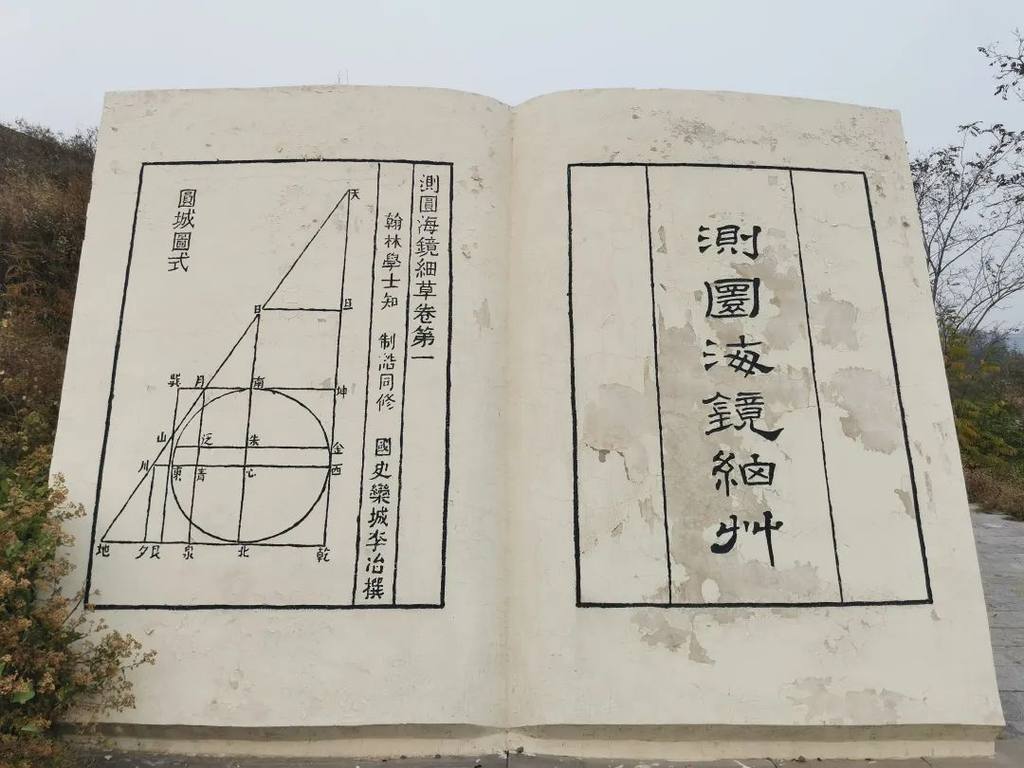 測圓海鏡細艸
測圓海鏡細草卷第一
翰林學士知 制誥同修 國史欒城李冶撰
圓城圖式
天
日 旦
巽 月 南 坤
山 泛 朱 金
川 東 青 心 西
地 夕 艮 泉 北 乾